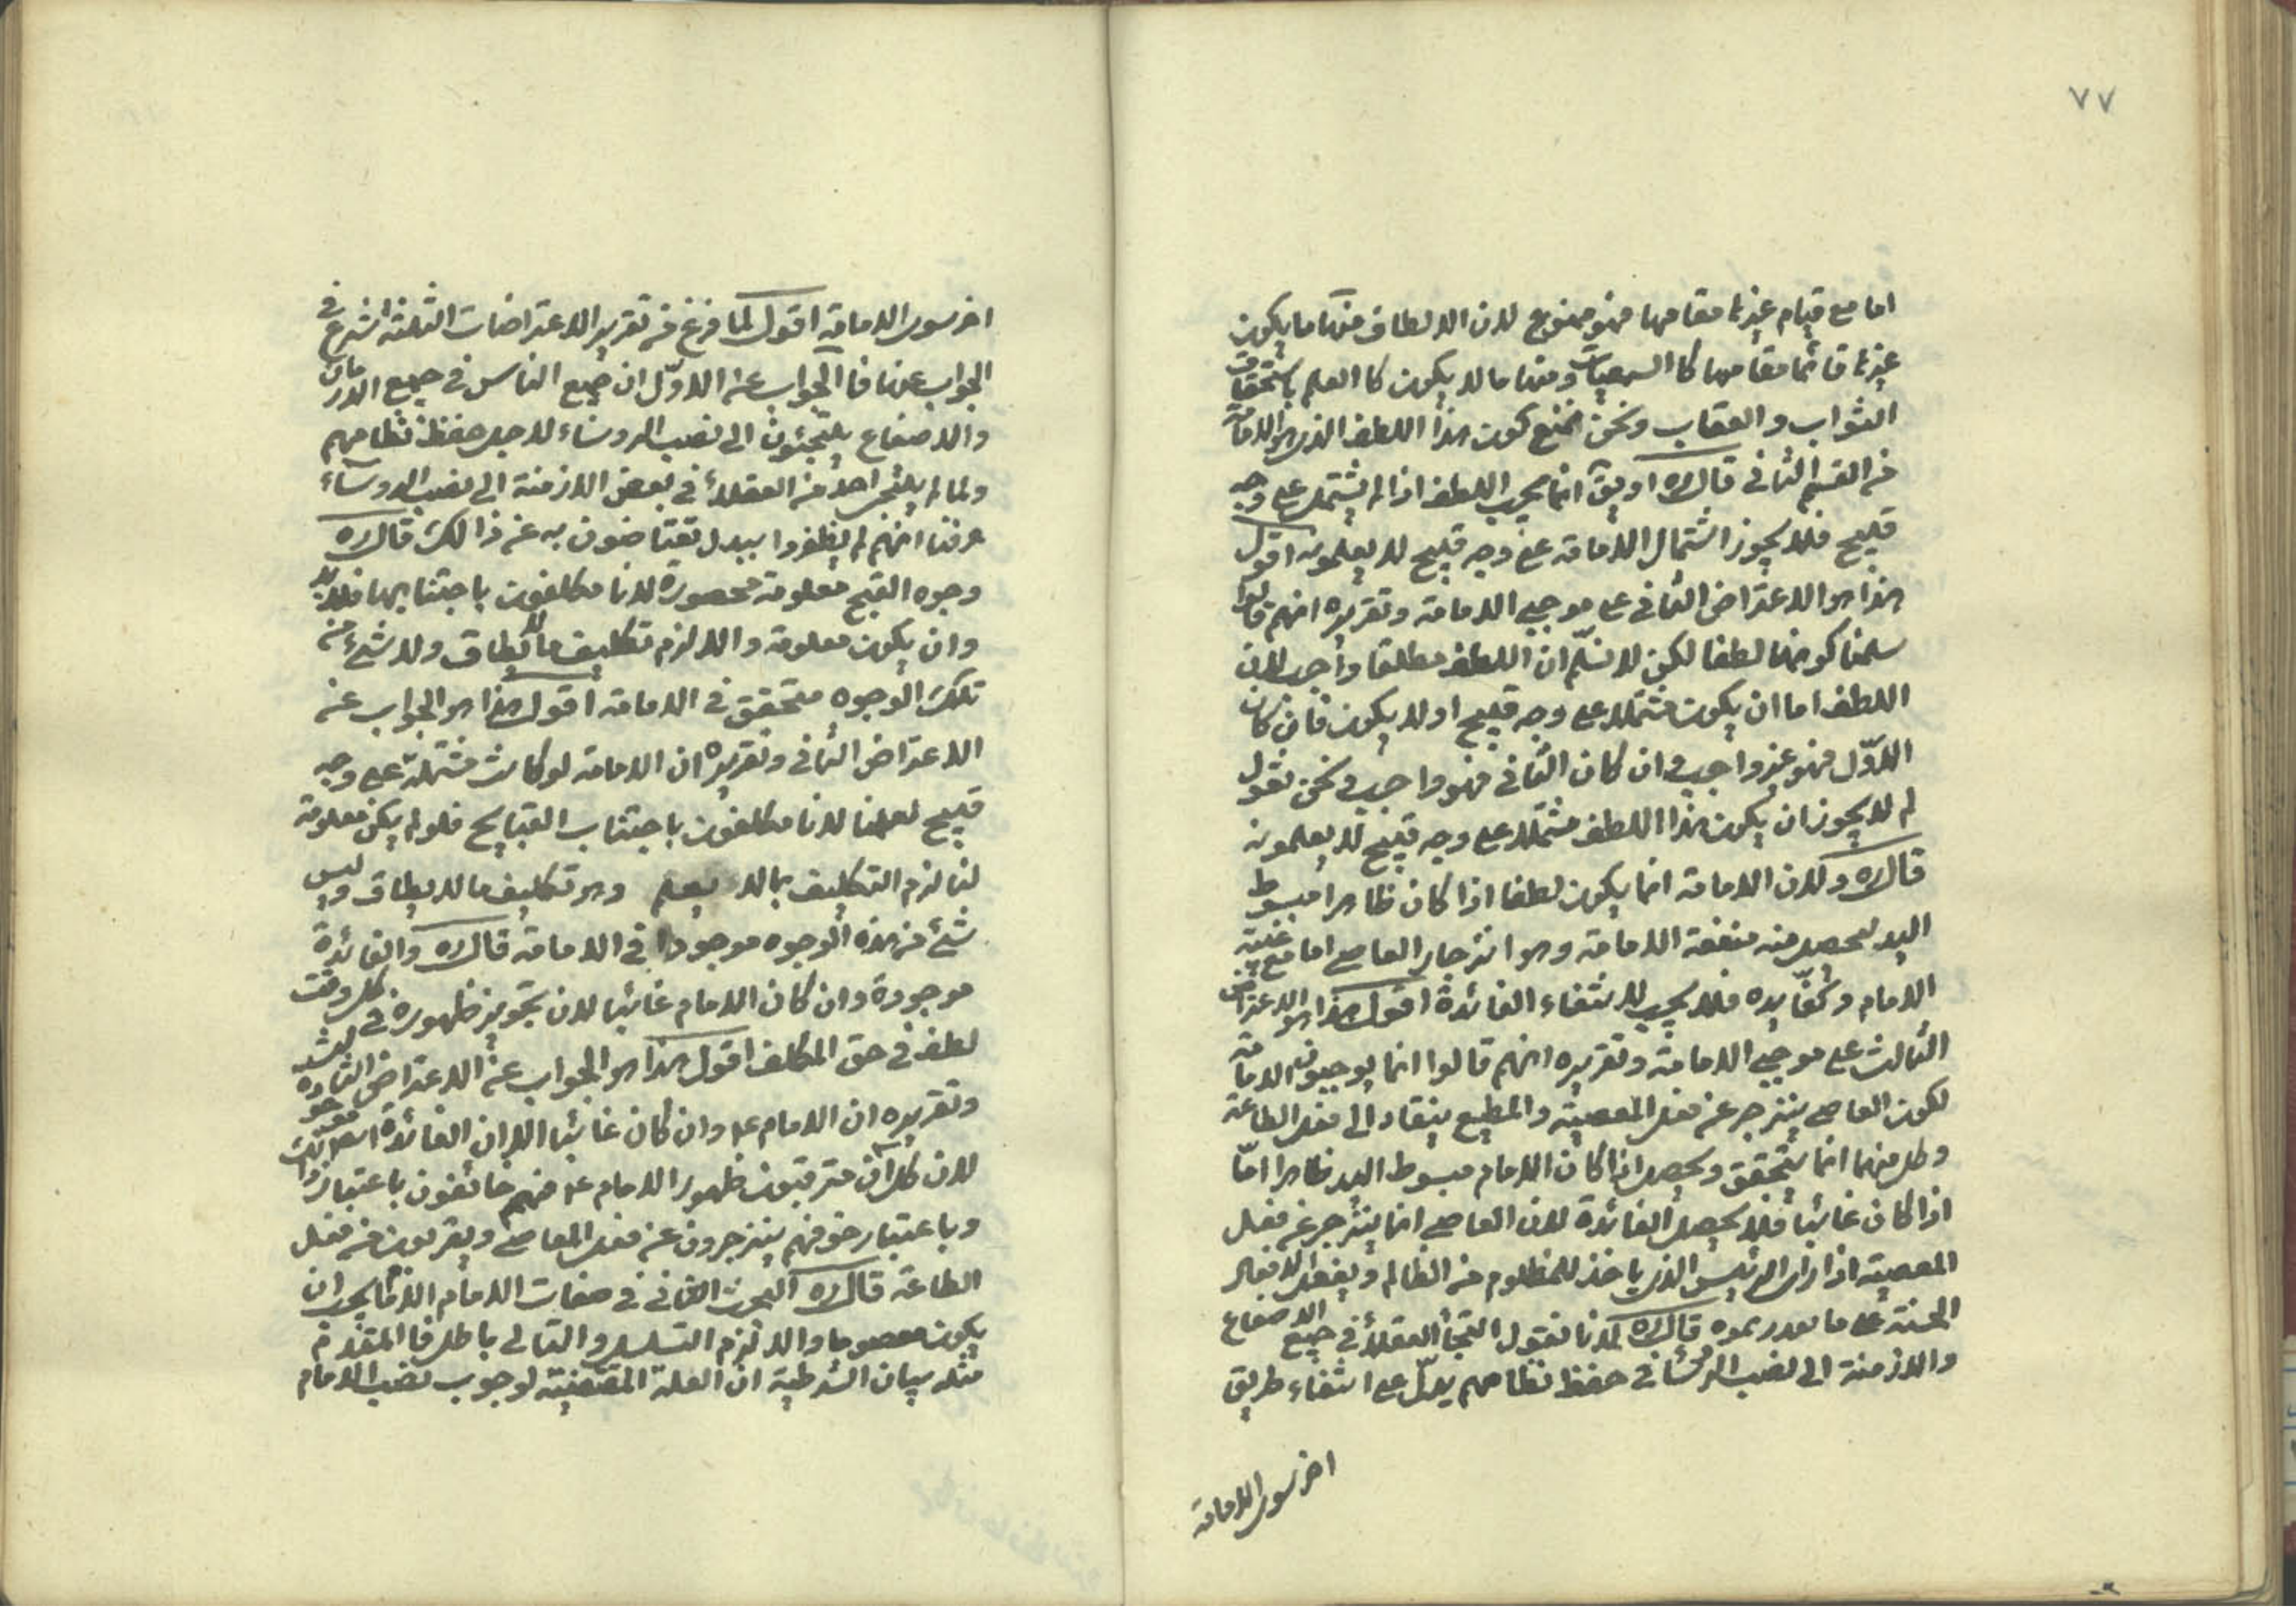 ٧٧
اما مع قيام غيرها مقامها فهو ممنوع لان الالطاف منها ما يكون
غيرها قائما مقامها كا السمعيات ومنها ما لا يكون كا العلم باستحقاق
الثواب والعقاب ونحن نمنع كون هذا اللطف الذى هو الامامة
من القسم الثانى قال ره او يق انما يجب اللطف اذا لم يشتمل على وجه
قبيح فلا يجوز اشتمال الامامة على وجه قبيح لا يعلمونه اقول
هذا هو الاعتراض الثانى على موجبى الامامة وتقريره انهم قالوا
سلمنا كونها لطفا لكن لا نسلّم ان اللطف مطلقا واجب لان
اللطف اما ان يكون مشتملا على وجه قبيح او لا يكون فان كان
الاوّل فهو غير واجب وان كان الثانى فهو واجب ونحن نقول
لم لا يجوز ان يكون هذا اللطف مشتملا على وجه قبيح لا يعلمونه
قال ره ولان الامامة انما يكون لطفا اذا كان ظاهرا مبسوط
اليد ليحصل منه منفعة الامامة وهو انزجار العاصى اما مع غيبة
الامام وكفّ يده فلا يجب لانتفاء الفائدة اقول هذا هو الاعتراض
الثالث على موجبى الامامة وتقريره انهم قالوا انما يوجبون الامامة
لكون العاصى ينزجر عن فعل المعصية والمطيع ينقاد الى فعل الطاعة
وكل منهما انما يتحقق ويحصل اذا كان الامام مبسوط اليد ظاهرا امّا
اذا كان غائبا فلا يحصل الفائدة لان العاصى انما ينزجر عن فعل
المعصية اذا راى الرئيس الذى ياخذ للمظلوم من الظالم ويفعل الافعال
الحسنة على ما قال ره لانا نقول التجأ العقلاء فى جميع الاصقاع
والازمنة الى نصب الرؤسا فى حفظ نظامهم يدلّ على انتفاء طريق
اخر سوى الامامة
اخر سوى الامامة اقول لما فرغ من تقرير الاعتراضات الثلثة شرع فى
الجواب عنها فا الجواب عن الاوّل ان جميع الناس فى جميع الازمان
والاصقاع يلتجئون الى نصب الروساء لاجل حفظ نظامهم
ولما لم يلتجى احد من العقلاء فى بعض الازمنة الى نصب الروساء
عرفنا انهم لم يظفروا ببدل تعتاضون به عن ذالك قال ره
وجوه القبح معلومة محصورة لانا مكلفون باجتنابها فلا بد
وان يكون معلومة والا لزم تكليف ما لا يطاق ولا شئ من
تلك الوجوه متحقق فى الامامة اقول هذا هو الجواب عن
الاعتراض الثانى وتقريره ان الامامة لو كانت مشتملة على وجه
قبيح لعلمنا لانا مكلفون باجتناب القبايح فلو لم يكن معلومة
لنا لزم التكليف بما لا يعلم وهو تكليف ما لا يطاق وليس
شئ من هذه الوجوه موجودا فى الامامة قال ره والفائدة
موجودة وان كان الامام غائبا لان تجويز ظهوره فى كل وقت
لطف فى حق المكلف اقول هذا هو الجواب عن الاعتراض الثالث
وتقريره ان الامام ع وان كان غائبا الا ان الفائدة موجودة
لان كل ان مترقبون ظهور الامام ع فهم خائفون باعتبار ذلك
وباعتبار خوفهم ينزجرون عن فعل المعاصى ويقربون من فعل
الطاعة قال ره البحث الثانى فى صفات الامام الاول يجب ان
يكون معصوما والا لزم التسلسل والتالى باطل فا المقدم
مثله بيان الشرطية ان العلة المقتضية لوجوب نصب الامام